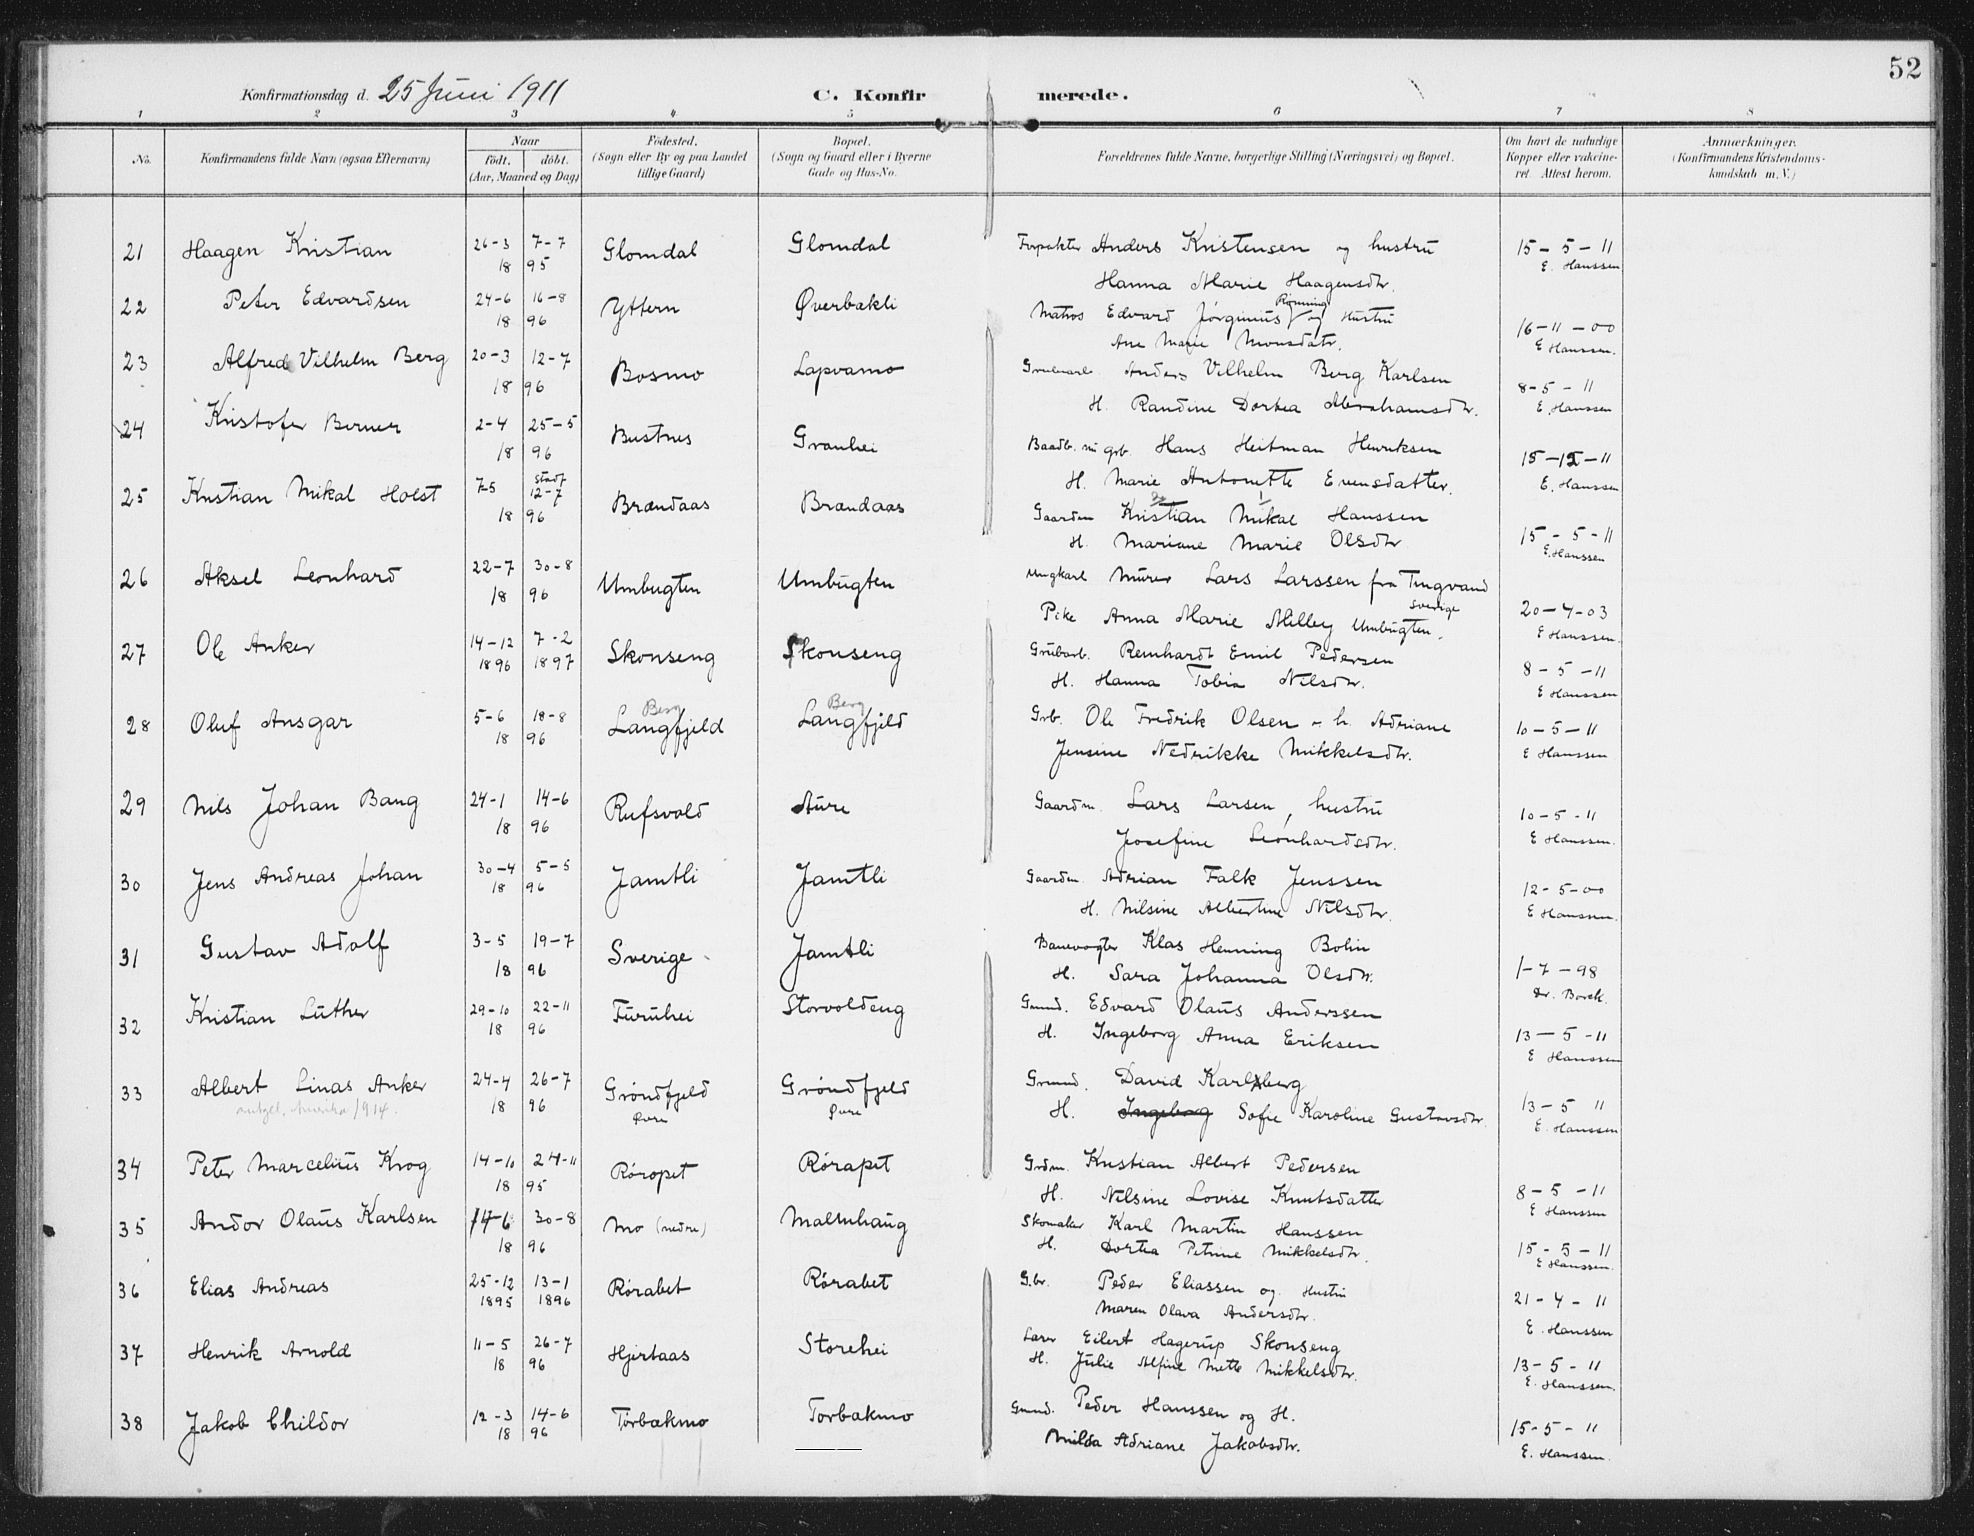 52
Konfirmationsdag d. 25 Juni 1911 C. Konfirmerede.
1 2 3 4 5 6 7 8
No. Konfirmandens fulde Navn (ogsaa Efternavn) Naar født. døbt. (Aar, Maaned og Dag) Fødested. (Sogn eller By og paa Landet tillige Gaard) Bopæl. (Sogn og Gaard eller i Byerne Gade og Hus-No. Forældrenes fulde Navne, borgerlige Stilling (Næringsvei) og Bopæl. Om havt de naturlige Kopper eller vakcineret. Attest herom. Anmærkninger. (Konfirmandens Kristendomskundskab m. V.)
21 Haagen Kristian 26-3 7-7 Glomdal Glomdal Forpakter Anders Kristensen og hustru 15-5-11
18 95 Hanna Marie Haagensdtr. E. Hanssen
22 Peter Edvardsen 24-6 16-8 Yttern Øverbakli Matros Edvard Jørginius Rønning og Hustru 16-11-00
18 96 Ane Marie Monsdatr. E Hanssen.
23 Alfred Vilhelm Berg 20-3 12-7 Bosmo Lapvamo Anders Vilhelm Berg Karlsen 8-5-11
18 96 H. Randine Dortea Abrahamsdtr. E. Hanssen
24 Kristofer Berner 2-4 25-5 Bustnes Granhei Hans Heitman Henriksen 15-12-11
18 96 H. Marie Antonette Evensdatter. E. Hanssen
25 Kristian Mikal Holst 7-5 12-7 Brændaas Brændaas Gaardm Kristian Mikal Hanssen 15-5-11
18 96 H. Mariane Marie Olsdtr E. Hanssen
26 Aksel Leonhard 22-7 30-8 Umbugten Umbugten Ungkarl Murer Lars Larssen fra Tingvand Sverige 20-4-03
18 96 Pike Anna Marie Umbugten. E Hanssen.
27 Ole Anker 14-12 7-2 Skonseng Skonseng Grubarb. Reinhardt Emil Pedersen 8-5-11
1896 1897 H. Hanna Tobia Nilsdtr. E Hanssen
28 Oluf Ansgar 5-6 18-8 Berg Langfjeld Berg Langfjeld Grb. Ole Fredrik Olsen - h. Adriane 10-5-11
18 96 Jensine Nedrikke Mikkelsdtr. E Hanssen
29 Nils Johan Bang 24-1 14-6 Rufsvold Aure Gaardm. Lars Larsen, hustru 10-5-11
18 96 Josefine Leonhardsdtr. E Hanssen.
30 Jens Andreas Johan 30-4 5-5 Jamtli Jamtli Gaardm. Adrian Falk Jenssen 12-5-00
18 96 H. Nilsine Albertine Nilsdtr. E Hanssen.
31 Gustav Adolf 3-5 19-7 Sverige Jamtli Banevogter Klas Henning Bolin 1-7-98
18 96 H. Sara Johanna Olsdtr. Dr. Borch.
32 Kristian Luther 29-10 22-11 Furuhei Storvoldeng Edvard Olaus Anderssen 13-5-11
18 96 H. Ingeborg Anna Eriksen E Hanssen
33 Albert Linas Anker 24-4 26-7 Grøndfjeld Grøndfjeld David Karlsberg 13-5 11
Amerika 1914. 18 96 Øvre Øvre H. Ingeborg Sofie Karoline Gustavsdtr. E. Hanssen
34 Peter Marcelius Krog 14-10 24-11 Røropet Rørapet Grdm. Kristian Albert Pedersen 8-5-11
18 95 H. Nilsine Lovise Knutsdatter E Hanssen
35 Andor Olaus Karlsen 14-6 30-8 Mo (nedre) Malmhaug Skomaker Karl Martin Hanssen 15-5-11
18 96 H. Dortea Petrine Mikkelsdtr. E Hanssen.
36 Elias Andreas 25-12 13-1 Rørabet Rørabet G.br. Peder Eliassen og Hustru 21-4-11
1895 1896 Maren Olava Andersdtr. E. Hanssen
37 Henrik Arnold 11-5 26-7 Hjertaas Storehei Lærer Eilert Hagerup Skonseng 13-5-11
18 96 H. Julie Alfine Mette Mikkelsdtr. E. Hanssen.
38 Jakob Childor 12-3 14-6 Torbækmo Torbækmo Peder Hanssen og H. 15-5-11
18 96 Milda Adriane Jakobsdtr. E. Hanssen.